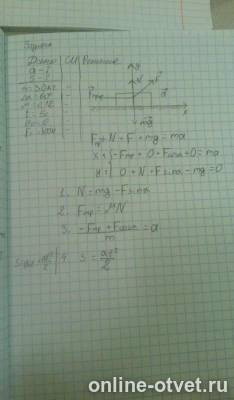 Задача
Дано: СИ Решение
a - ?
S - ?
t = 5c
y
N
F
Fтр
a
x
mg
Fтр + N + F + mg = ma
x: { -Fтр + 0 + Fcosα + 0 = ma
y: { 0 + N + Fsinα - mg = 0
1. N = mg - Fsinα
2. Fтр = μN
3. -Fтр + Fcosα / m = a
4. S = at² / 2
online-otvet.ru